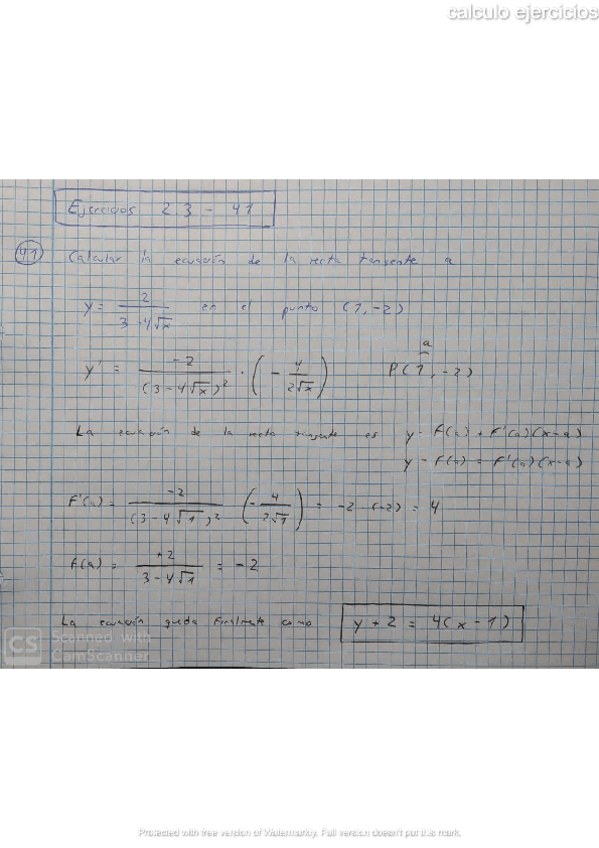 calculo ejercicios
Ejercicios 2.3 - 41
41 Calcular la ecuación de la recta tangente a
y = 2 / (3 - 4√x) en el punto (1, -2)
a
y' = -2 / (3 - 4√x)² · (- 4 / 2√x) P(1, -2)
La ecuación de la recta tangente es y = f(a) + f'(a)(x-a)
y - f(a) = f'(a)(x-a)
F'(a) = -2 / (3 - 4√1)² (- 4 / 2√1) = -2 · (-2) = 4
f(a) = +2 / (3 - 4√1) = -2
La ecuación queda finalmente como y + 2 = 4(x - 1)
CS Scanned with
CamScanner
Protected with free version of Watermarkly. Full version doesn't put this mark.